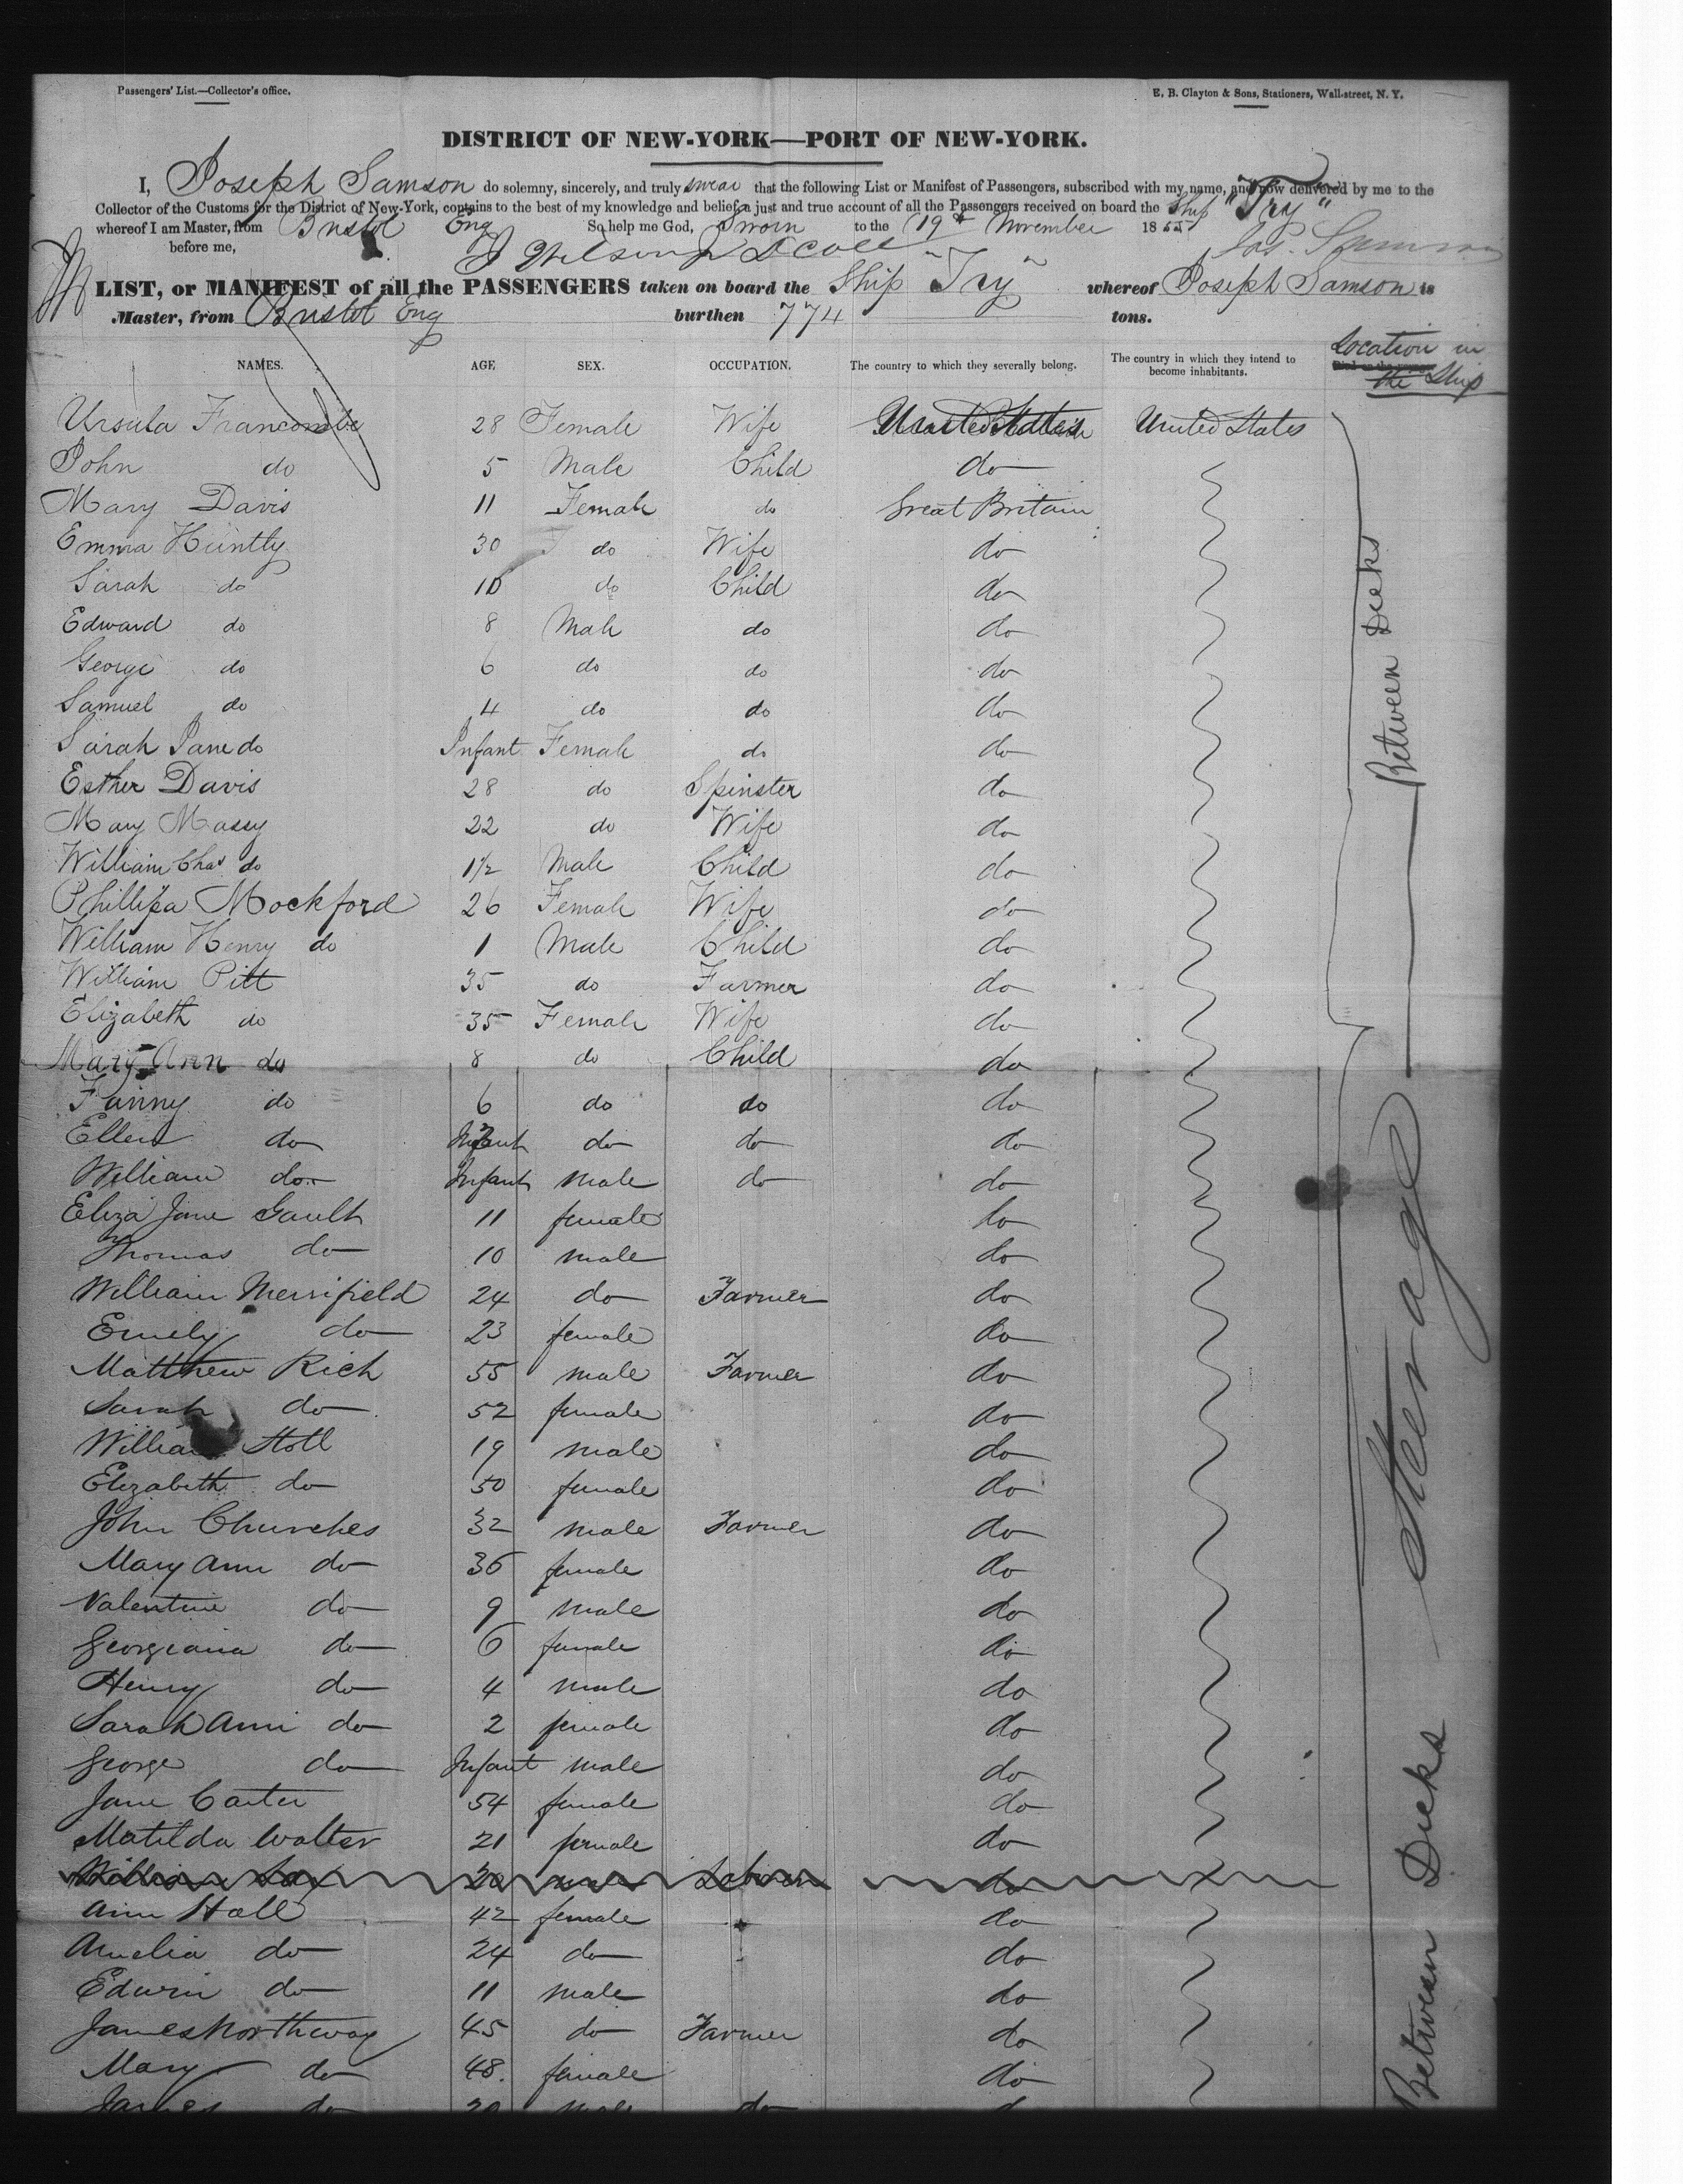 Passengers' List.—Collector's office.
E. B. Clayton & Sons, Stationers, Wall-street, N. Y.
DISTRICT OF NEW-YORK—PORT OF NEW-YORK.
I, Joseph Samson do solemny, sincerely, and truly swear that the following List or Manifest of Passengers, subscribed with my name, and now delivered by me to the
Collector of the Customs for the District of New-York, contains to the best of my knowledge and belief, a just and true account of all the Passengers received on board the Ship "Try"
whereof I am Master, from Bristol Eng So help me God, Sworn to the 19th November 1855
before me, Jos. Samson
LIST, or MANIFEST of all the PASSENGERS taken on board the Ship "Try" whereof Joseph Samson is
Master, from Bristol Eng burthen 774 tons.
NAMES. AGE SEX. OCCUPATION. The country to which they severally belong. The country in which they intend to become inhabitants. Location in the Ship
Ursula Francombe 28 Female Wife United States United States
John do 5 Male Child do
Mary Davis 11 Female do Great Britain
Emma Huntly 30 do Wife do
Sarah do 10 do Child do
Edward do 8 Male do do
George do 6 do do do
Samuel do 4 do do do
Sarah Jane do Infant Female do do
Esther Davis 28 do Spinster do
Mary Massy 22 do Wife do
William Chas do 1½ Male Child do
Phillipa Mockford 26 Female Wife do
William Henry do 1 Male Child do
William Pitt 35 do Farmer do
Elizabeth do 35 Female Wife do
Mary Ann do 8 do Child do
Fanny do 6 do do do
Ellen do 2 do do do
William do Infant male do do
Eliza Jane Gault 11 female do
Thomas do 10 male do
William Merrifield 24 do Farmer do
Emily do 23 female do
Matthew Rich 55 male Farmer do
Sarah do 52 female do
William Stoll 19 male do
Elizabeth do 50 female do
John Churches 32 male Farmer do
Mary Ann do 36 female do
Valentine do 9 male do
Georgeana do 6 female do
Henry do 4 male do
Sarah Ann do 2 female do
George do Infant male do
Jane Carter 54 female do
Matilda Walter 21 female do
William 20 male Laborer do
Ann Hall 42 female do
Amelia do 24 do do
Edwin do 11 male do
James Northway 45 do Farmer do
Mary do 48. female do
James do 20 male do
Between Decks
Steerage
Between Decks